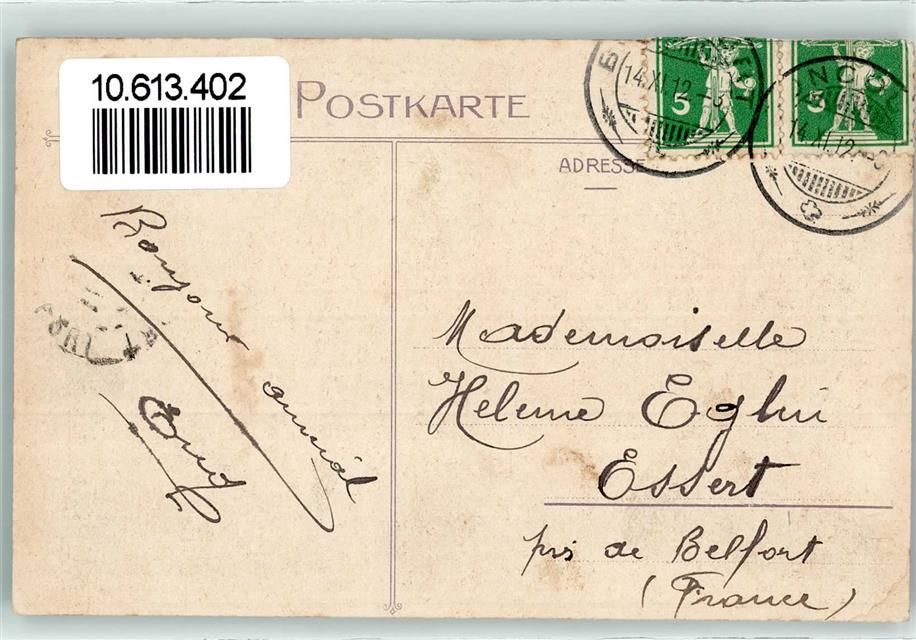 10.613.402
POSTKARTE
ADRESSE
5
5
14.XI.12
14.XI.12
Bonjour
amical
Mademoiselle
Helene Eglin
Essert
près de Belfort
(France)